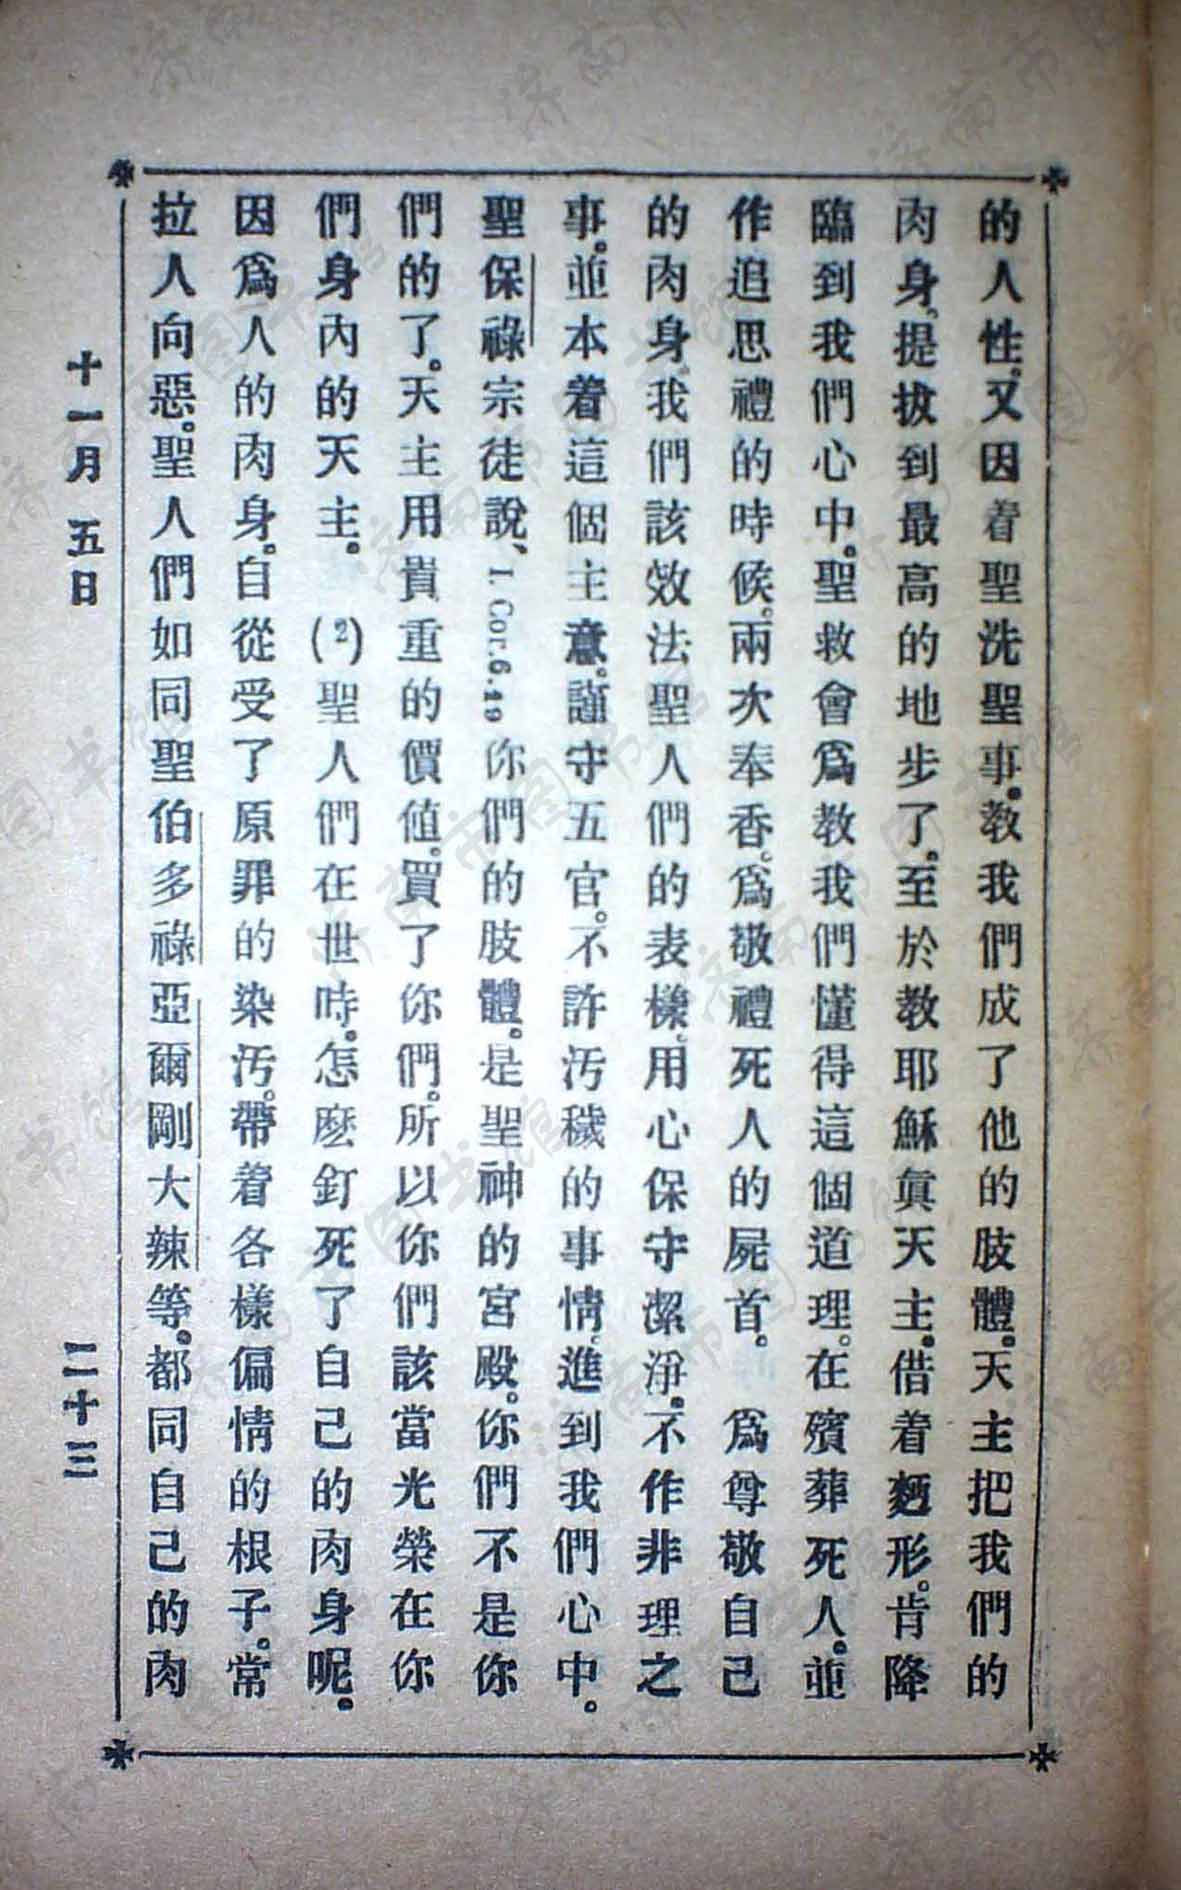 的人性。又因着聖洗聖事。教我們成了他的肢體。天主把我們的
肉身。提拔到最高的地步了。至於教耶穌眞天主。借着麪形。肯降
臨到我們心中。聖敎會爲教我們懂得這個道理。在殯葬死人。並
作追思禮的時候。兩次奉香。爲敬禮死人的屍首。 爲尊敬自己
的肉身。我們該效法聖人們的表樣。用心保守潔淨。不作非理之
事。並本着這個主意。謹守五官。不許汚穢的事情。進到我們心中。
聖保祿宗徒說、I. Cor. 6. 19 你們的肢體。是聖神的宮殿。你們不是你
們的了。天主用貴重的價值。買了你們。所以你們該當光榮在你
們身內的天主。 (2) 聖人們在世時。怎麽釘死了自己的肉身呢。
因爲人的肉身。自從受了原罪的染汚。帶着各樣偏情的根子。常
拉人向惡。聖人們如同聖伯多祿亞爾剛大辣等。都同自己的肉
十一月 五日 二十三